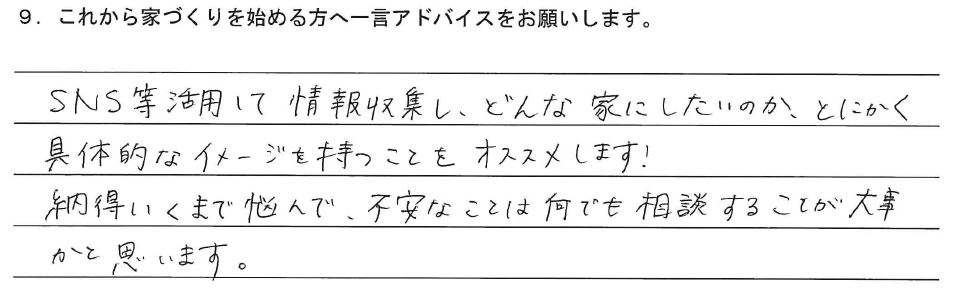 ９．これから家づくりを始める方へ一言アドバイスをお願いします。
SNS等活用して情報収集し、どんな家にしたいのか、とにかく
具体的なイメージを持つことをオススメします!
納得いくまで悩んで、不安なことは何でも相談することが大事
かと思います。